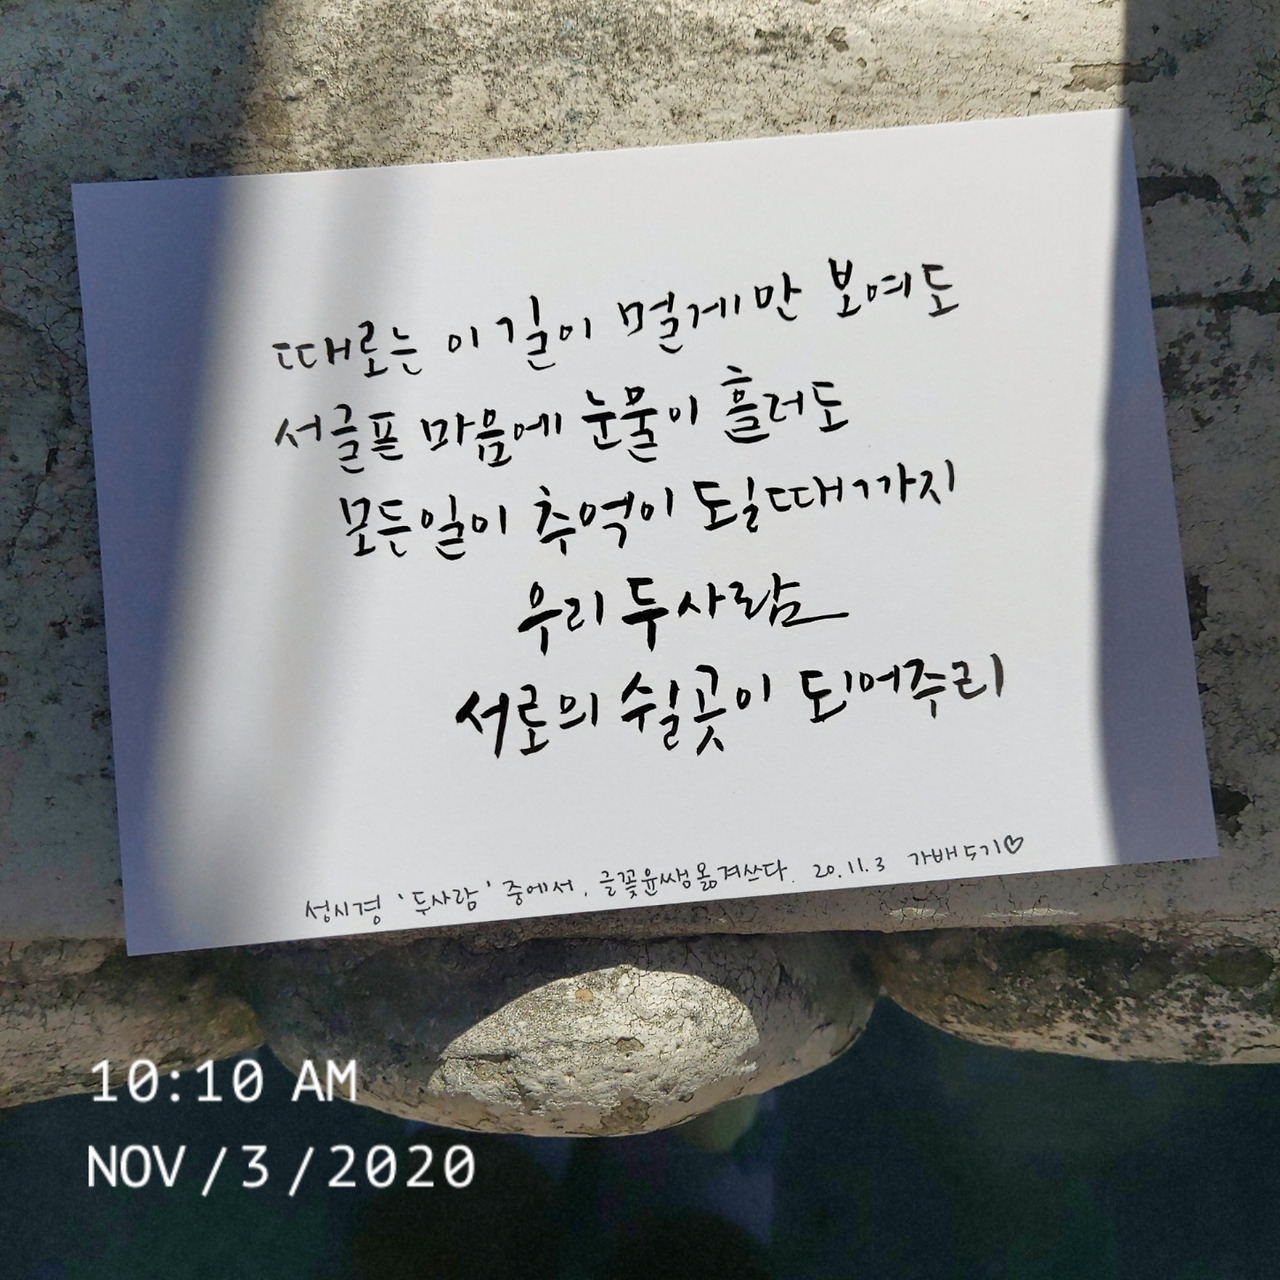 때로는 이 길이 멀게만 보여도
서글픈 마음에 눈물이 흘러도
모든일이 추억이 될때까지
우리 두사람
서로의 쉴곳이 되어주리
성시경 '두사람' 중에서. 글꽃윤쌤옮겨쓰다. 20.11.3 가배두기♡
10:10 AM
NOV/3/2020